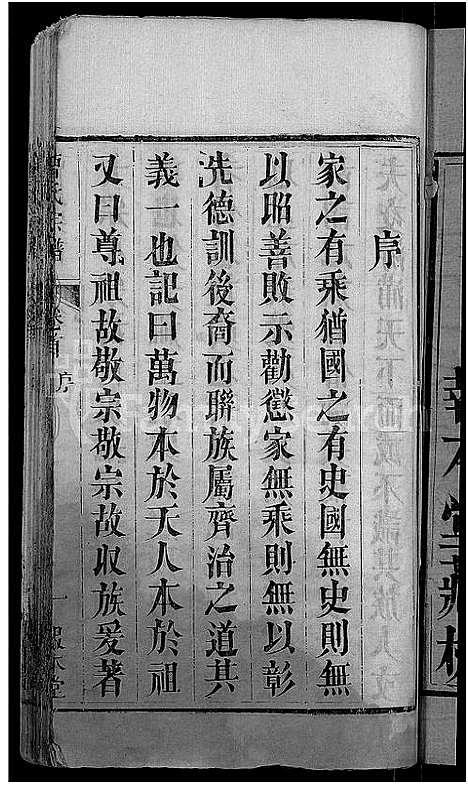 報本堂藏板
序
家之有乘猶國之有史國無史則無
以昭善敗示勸懲家無乘則無以彰
先德訓後裔而聯族屬齊治之道其
義一也記曰萬物本於天人本於祖
又曰尊祖故敬宗敬宗故収族爰著
氏宗譜 卷首 序 一 報本堂